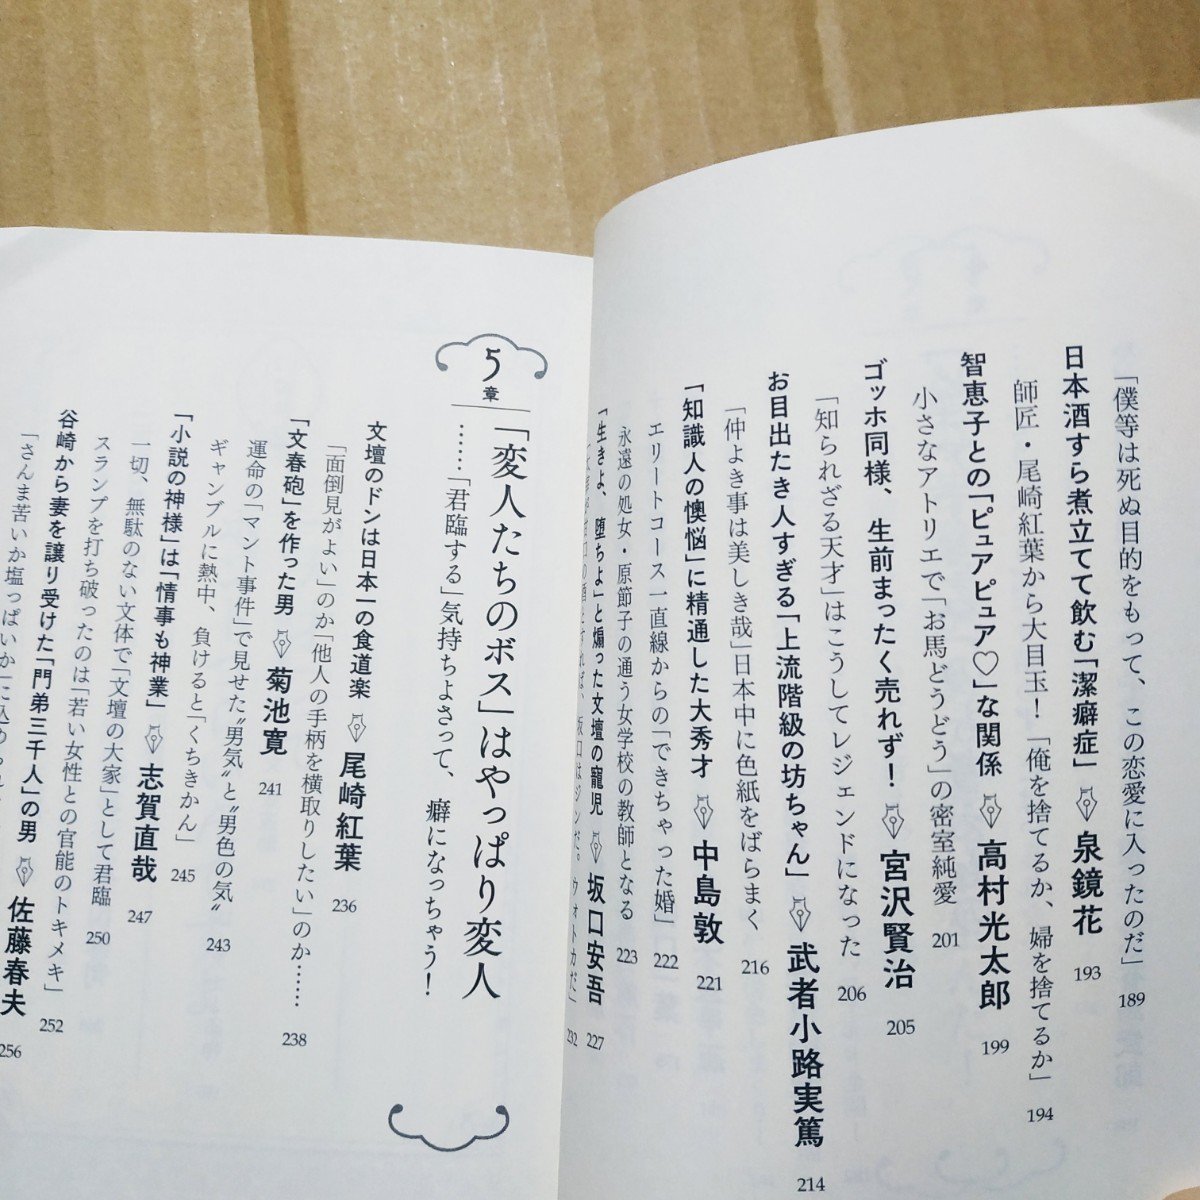 「僕等は死ぬ目的をもって、この恋愛に入ったのだ」 189
日本酒すら煮立てて飲む「潔癖症」 泉鏡花 193
師匠・尾崎紅葉から大目玉！「俺を捨てるか、婦を捨てるか」 194
智恵子との「ピュアピュア♡」な関係 高村光太郎 199
小さなアトリエで「お馬どうどう」の密室純愛 201
ゴッホ同様、生前まったく売れず！ 宮沢賢治 205
「知られざる天才」はこうしてレジェンドになった 206
お目出たき人すぎる「上流階級の坊ちゃん」 武者小路実篤 214
「仲よき事は美しき哉」日本中に色紙をばらまく 216
「知識人の懊悩」に精通した大秀才 中島敦 221
エリートコース一直線からの「できちゃった婚」 222
永遠の処女・原節子の通う女学校の教師となる 223
「生きよ、堕ちよ」と煽った文壇の寵児 坂口安吾 227
坂口はジンだ。ウォトカだ」 232
5章
「変人たちのボス」はやっぱり変人
……「君臨する」気持ちよさって、癖になっちゃう！
文壇のドンは日本一の食道楽 尾崎紅葉 236
「面倒見がよい」のか「他人の手柄を横取りしたい」のか…… 238
「文春砲」を作った男 菊池寛 241
運命の「マント事件」で見せた〝男気〟と〝男色の気〟 243
ギャンブルに熱中、負けると「くちきかん」 245
「小説の神様」は「情事も神業」 志賀直哉 247
一切、無駄のない文体で「文壇の大家」として君臨 250
スランプを打ち破ったのは「若い女性との官能のトキメキ」 252
谷崎から妻を譲り受けた「門弟三千人」の男 佐藤春夫 256
「さんま苦いか塩っぱいか」に込め